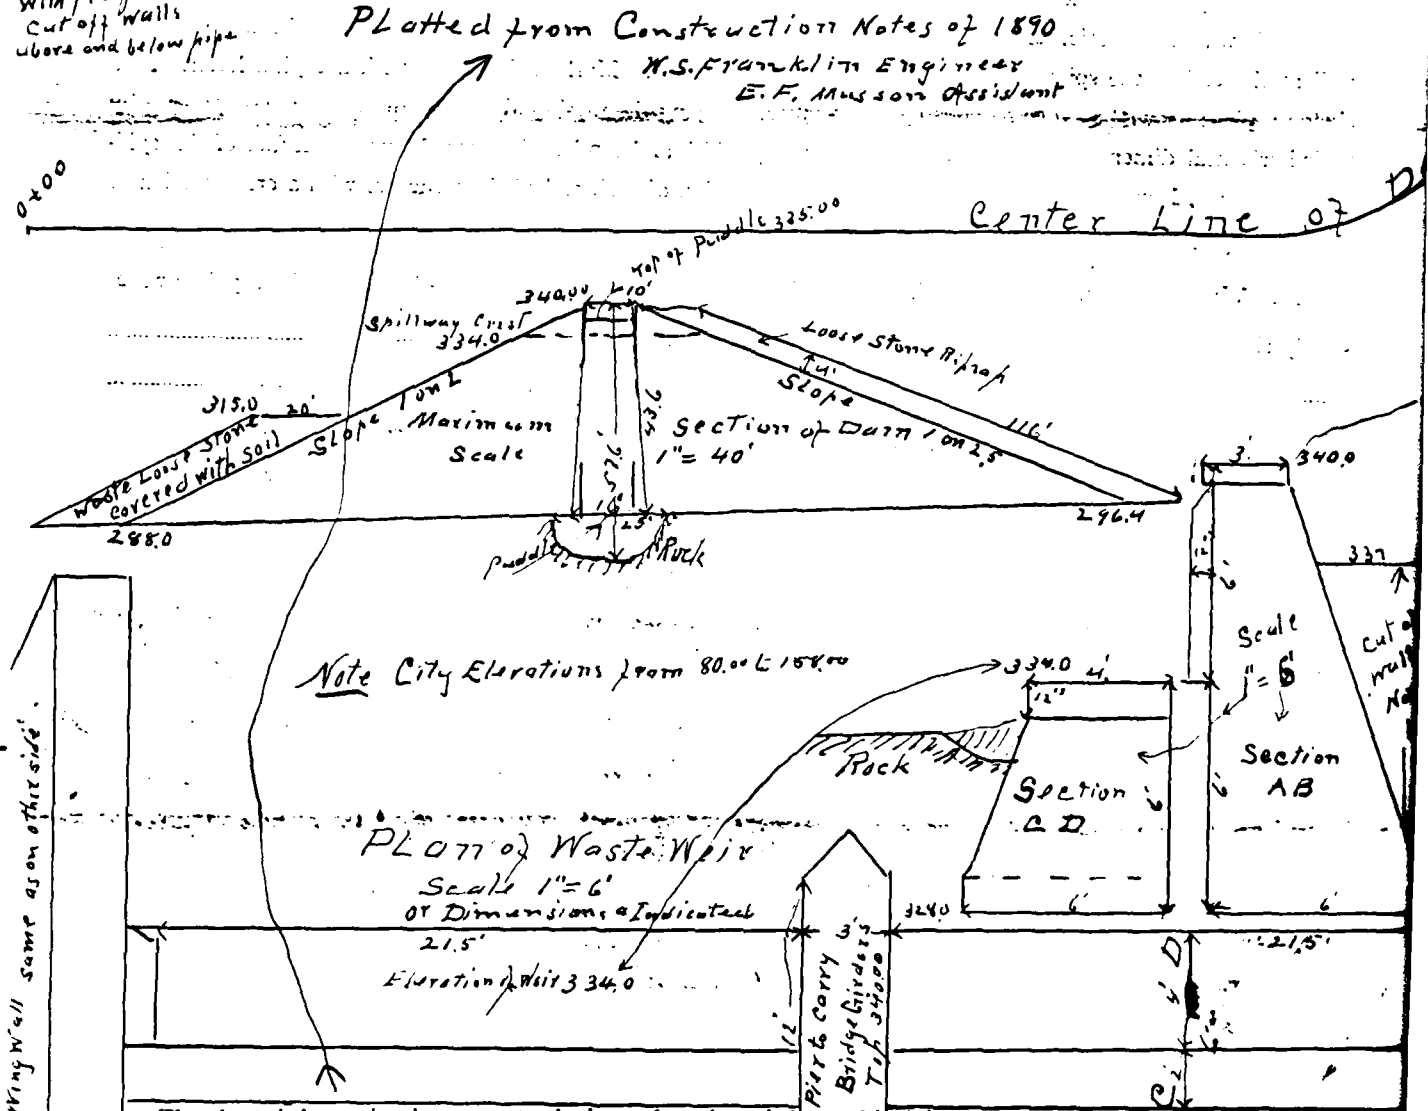 Cut off walls
above and below pipe
Platted from Construction Notes of 1890
W.S. Franklin Engineer
E.F. Musson Assistant
0+00
Center Line of
Top of Puddle 335.00
340.00
10'
Spillway Crest
334.0
Loose Stone Riprap
4'
Slope
1 on 2.5
116'
315.0
20'
Slope 1 on 2
Waste Loose Stone
covered with soil
Maximum
Section of Dam
Scale
1" = 40'
43.6
52.6'
25'
288.0
296.4
Puddle
Rock
3'
340.0
12"
6'
337
Scale
1" = 6'
Cut o
Wall
No
Note City Elevations from 80.00 to 158.00
334.0
4'
12"
Rock
Section
C D
6'
6'
Section
AB
328.0
6'
6'
Plan of Waste Weir
Scale 1" = 6'
or Dimensions as Indicated
21.5'
3'
21.5'
Elevation of Weir 334.0
12'
Pier to Carry
Bridge Girders
Top 340.00
D
4'
C
2'
Wing Wall same as on other side.